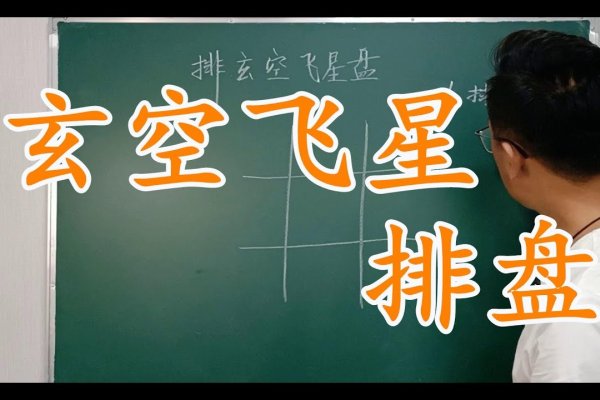 排玄空飞星盘
1 排
玄空飞星
排盘